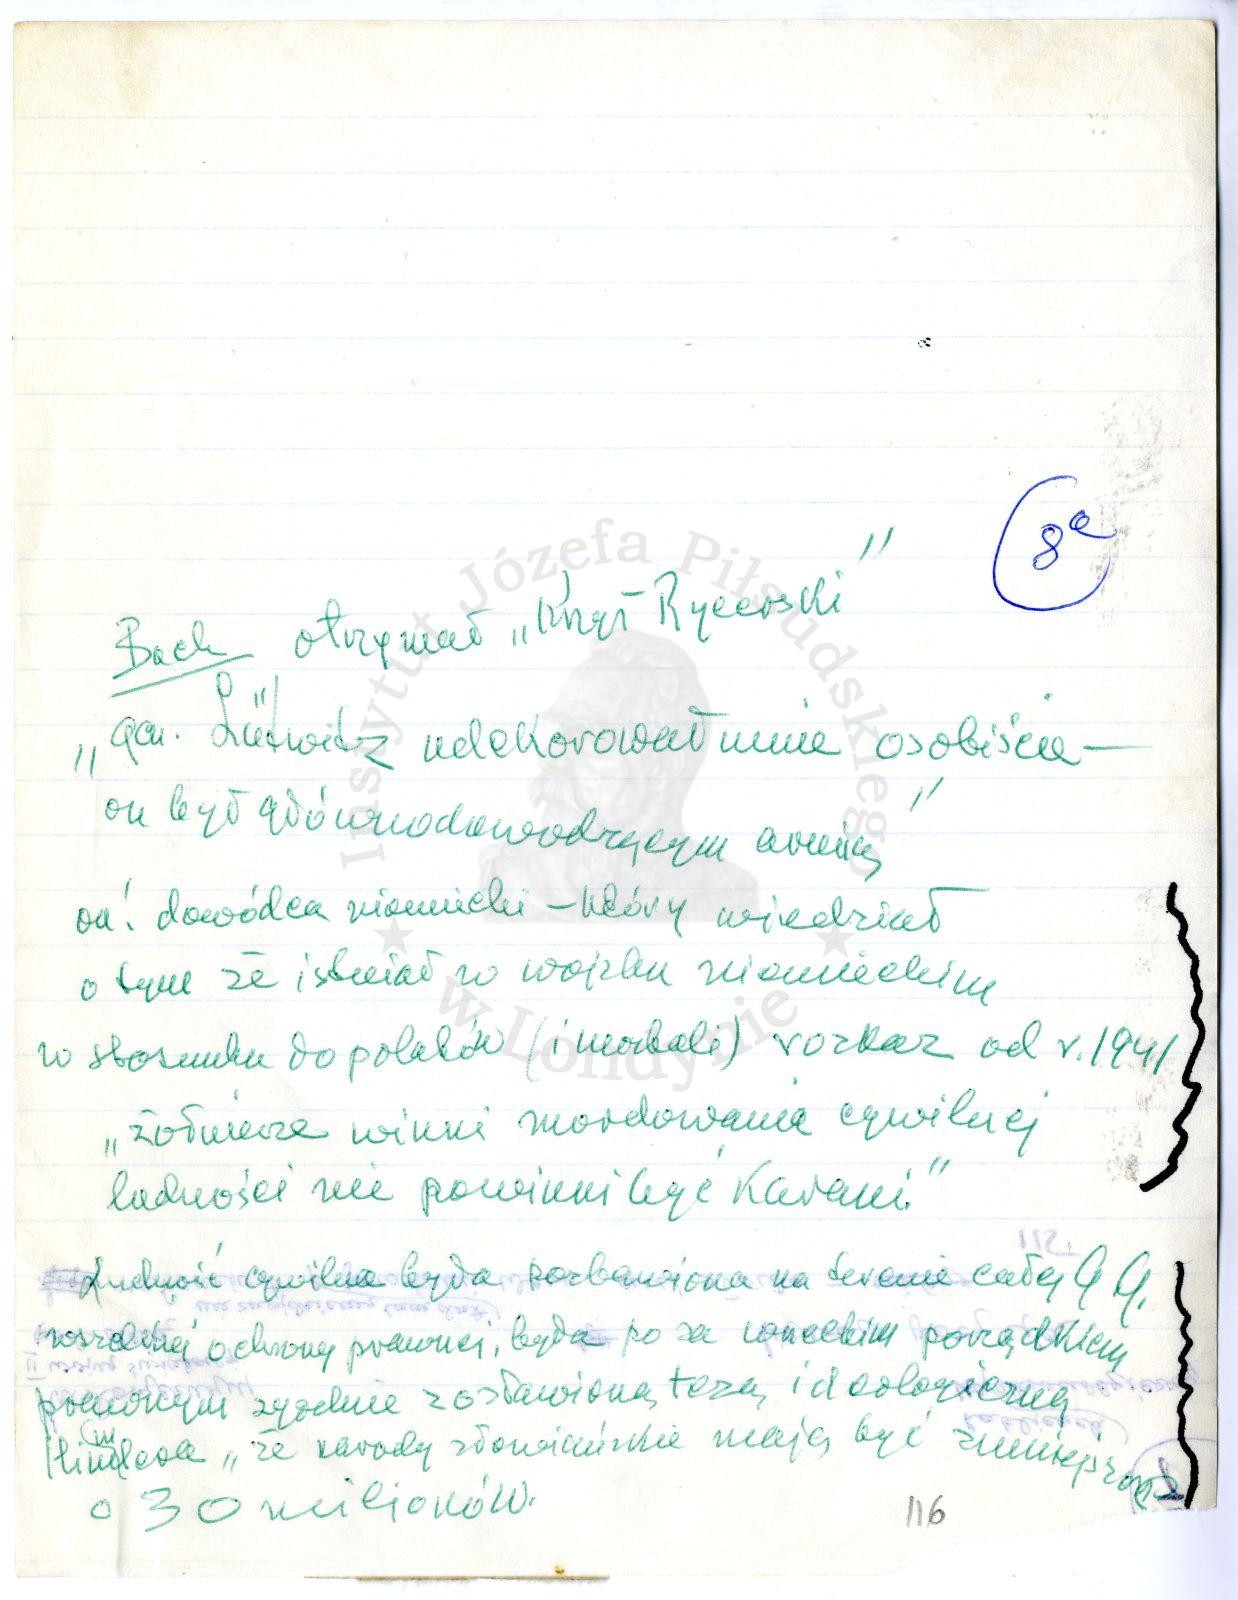 8a
Bach otrzymał „Krzyż Rycerski”
„gen. Lütwitz udekorował mnie osobiście —
on był głównodowodzącym armią”
on! dowódca niemiecki – który wiedział
o tym że istniał w wojsku niemieckim
w stosunku do polaków (i moskali) rozkaz od r. 1941
„żołnierze winni mordowania cywilnej
ludności nie powinni być karani.”
Ludność cywilna była pozbawiona na terenie całej G G.
wszelkiej ochrony prawnej, była po za wszelkim porządkiem
prawnym zgodnie z ostawioną tezą ideologiczną
Himlera „że narody słowiańskie mają być zmniejszone
o 30 milionów.
116
Instytut Józefa Piłsudskiego
w Londynie